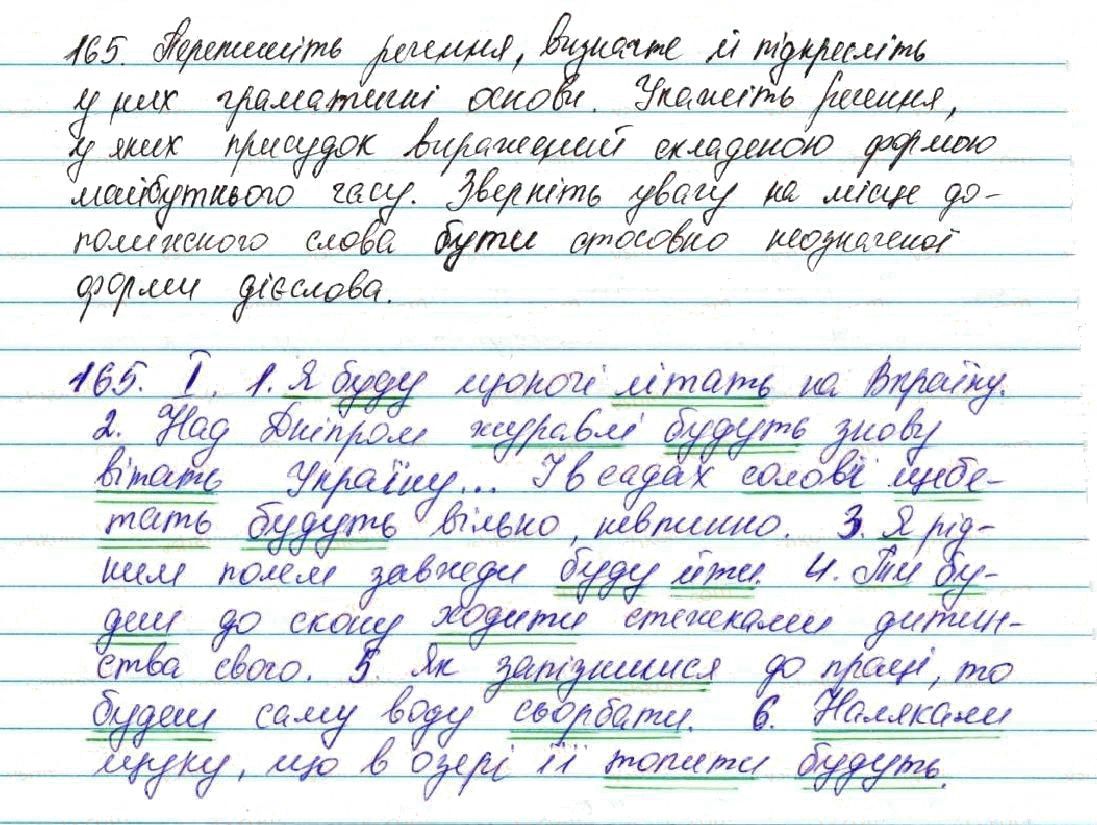 165. Перепишіть речення, визначте й підкресліть
у них граматичні основи. Укажіть речення,
у яких присудок виражений складеною формою
майбутнього часу. Зверніть увагу на місце до-
поміжного слова бути стосовно неозначеної
форми дієслова.
165. I. 1. Я буду щоночі літать на Вкраїну.
2. Над Дніпром журавлі будуть знову
вітать Україну... І в садах солов'ї щебе-
тать будуть вільно, невпинно. 3. Я рід-
ним полем завжди буду йти. 4. Ти бу-
деш до скону ходити стежками дитин-
ства свого. 5. Як запізнишся до праці, то
будеш саму воду сьорбати. 6. Налякали
щуку, що в озері її топити будуть.